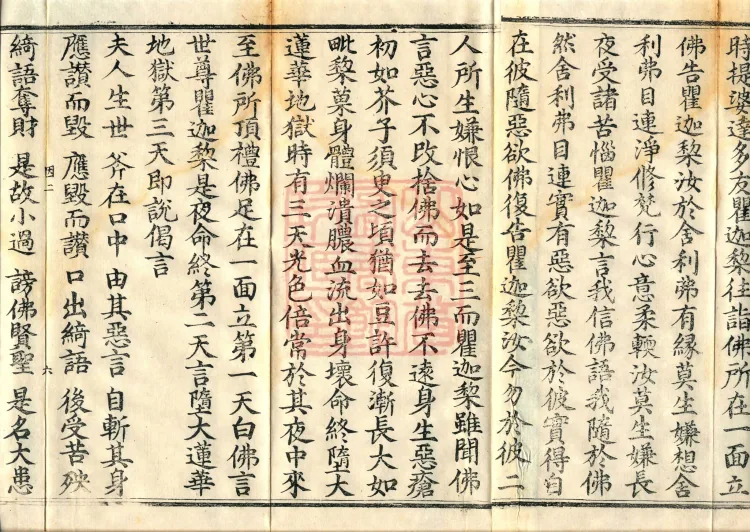 時提婆達多友瞿迦梨往詣佛所在一面立
佛告瞿迦梨汝於舍利弗有緣莫生嫌想舍
利弗目連淨修梵行心意柔軟汝莫生嫌長
夜受諸苦惱瞿迦梨言我信佛語我隨於佛
然舍利弗目連實有惡欲惡欲於彼實得自
在彼隨惡欲佛復告瞿迦梨汝今勿於彼二
人所生嫌恨心如是至三而瞿迦梨雖聞佛
言惡心不改捨佛而去去佛不遠身生惡瘡
初如芥子須臾之頃猶如豆許復漸長大如
毗梨菓身體爛潰膿血流出身壞命終墮大
蓮華地獄時有三天光色倍常於其夜中來
至佛所頂禮佛足在一面立第一天白佛言
世尊瞿迦梨是夜命終第二天言墮大蓮華
地獄第三天即說偈言
夫人生世 斧在口中 由其惡言 自斬其身
應讚而毀 應毀而讚 口出綺語 後受苦殃
四二 六
綺語奪財 是故小過 謗佛賢聖 是名大患